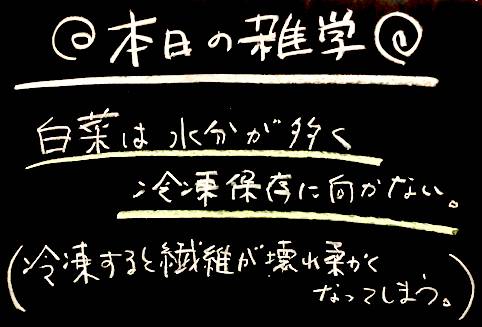 @本日の雑学@
白菜は水分が多く
冷凍保存に向かない。
(冷凍すると繊維が壊れ柔かく
なってしまう。)